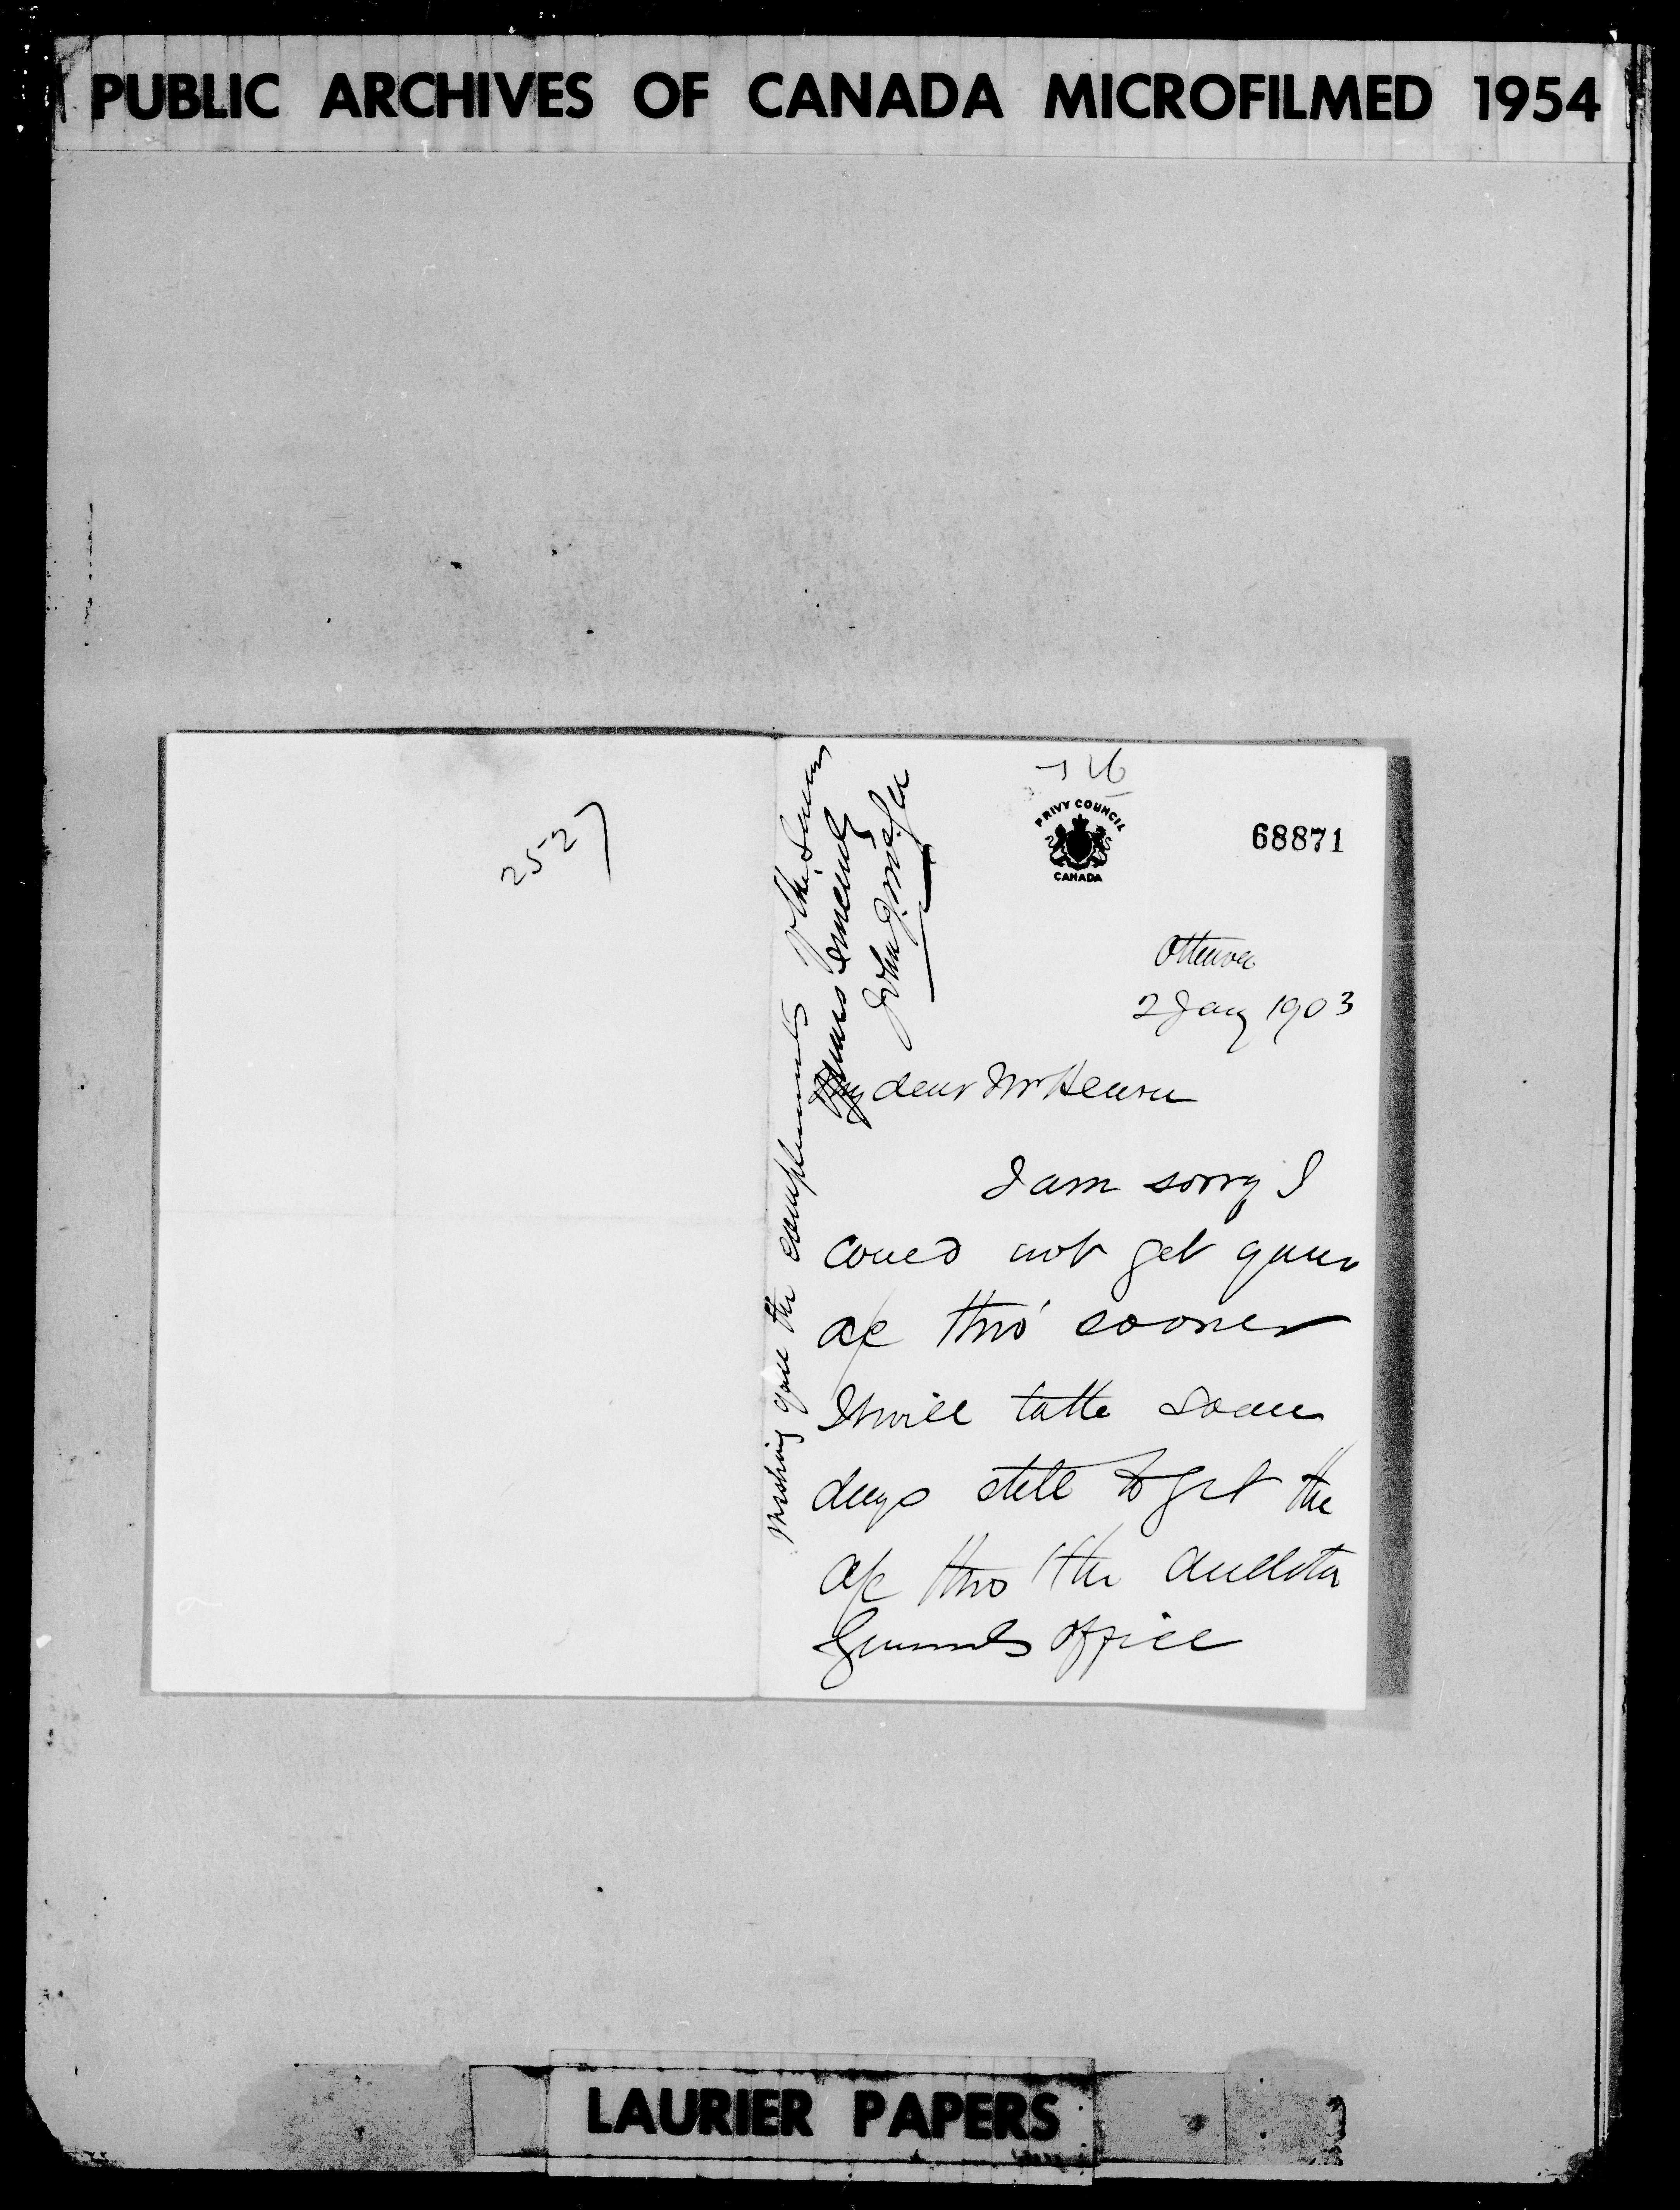 PUBLIC ARCHIVES OF CANADA MICROFILMED 1954
2527
PRIVY COUNCIL
CANADA
68871
Ottawa
2 Jany 1903
My dear Mr
I am sorry I
could not get your
a/c thro' sooner
It will take some
days still to get the
a/c thro the Auditor
Generals office
Wishing you the compliments of the Season
Yours Sincerely
John J.
LAURIER PAPERS